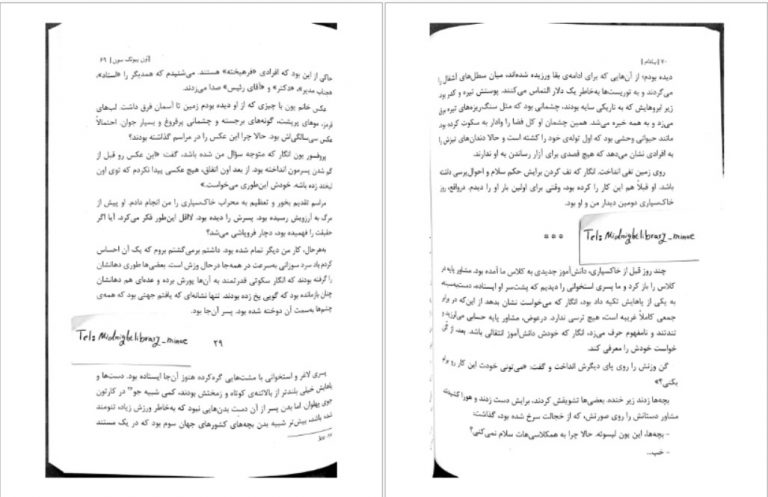 ۶۹ | اون پیونگ سون
حاکی از این بود که افرادی «فرهیخته» هستند. می‌شنیدم که همدیگر را «استاد»،
«جناب مدیر»، «دکتر» و «آقای رئیس» صدا می‌زدند.
عکس خانم یون با چیزی که از او دیده بودم زمین تا آسمان فرق داشت. لب‌های
قرمز، موهای پرپشت، گونه‌های برجسته و چشمانی پرفروغ و بسیار جوان. احتمالاً
عکس سی‌سالگی‌اش بود. حالا چرا این عکس را در مراسم گذاشته بودند؟
پروفسور یون انگار که متوجه سؤال من شده باشد، گفت: «این عکس رو قبل از
گم شدن پسرمون انداخته بود. از بعد اون اتفاق، هیچ عکسی پیدا نکردم که توی اون
لبخند زده باشه. خودش این‌طوری می‌خواست.»
مراسم تقدیم بخور و تعظیم به محراب خاک‌سپاری را من انجام دادم. او پیش از
مرگ به آرزویش رسیده بود. پسرش را دیده بود. لااقل این‌طور فکر می‌کرد. آیا اگر
حقیقت را فهمیده بود، دچار فروپاشی می‌شد؟
به‌هرحال، کار من دیگر تمام شده بود. داشتم برمی‌گشتم بروم که یک آن احساس
کردم باد سرد سوزانی به‌سرعت در همه‌جا درحال وزش است. بعضی‌ها طوری دهانشان
را گرفته بودند که انگار سکوتی قدرتمند به آن‌ها یورش برده و عده‌ای هم دهانشان
چنان بازمانده بود که گویی یخ زده بودند. تنها نشانه‌ای که یافتم جهتی بود که همه‌ی
چشم‌ها به‌سمت آن دوخته شده بود. پسر آن‌جا بود.
Tel: Midnightlibrary_minue
۲۹
پسری لاغر و استخوانی با مشت‌هایی گره‌کرده هنوز آن‌جا ایستاده بود. دست‌ها و
پاهایش خیلی بلندتر از بالاتنه‌ی کوتاه و زمختش بودند، کمی شبیه جو در کارتون
جوی پهلوان. اما بدن پسر از آن دست بدن‌هایی نبود که به‌خاطر ورزش زیاد، تنومند
شده باشد، پیش‌تر شبیه بدن بچه‌های کشورهای جهان سوم بود که در یک مستند
Joe
۷۰ | بادام
دیده بودم؛ از آن‌هایی که برای ادامه‌ی بقا ورزیده شده‌اند، میان سطل‌های آشغال را
می‌گردند و به توریست‌ها به‌خاطر یک دلار التماس می‌کنند. پوستش تیره و کدر بود
زیر ابروهایش که به تاریکی سایه بودند، چشمانی بود که مثل سنگ‌ریزه‌های تیره برق
می‌زد و به همه خیره می‌شد. همین چشمان او کل فضا را وادار به سکوت کرده بود
مانند حیوانی وحشی بود که اول توله‌ی خود را کشته است و حالا دندان‌های تیزش را
به افرادی نشان می‌دهد که هیچ قصدی برای آزار رساندن به او ندارند.
روی زمین تفی انداخت. انگار که تف کردن برایش حکم سلام و احوال‌پرسی داشته
باشد. او قبلاً هم این کار را کرده بود، وقتی برای اولین بار او را دیدم. درواقع، روز
خاک‌سپاری دومین دیدار من و او بود.
***
Tel: Midnightlibrary_minue
چند روز قبل از خاک‌سپاری، دانش‌آموز جدیدی به کلاس ما آمده بود. مشاور پایه در
کلاس را باز کرد و ما پسری استخوانی را دیدیم که پشت‌سر او ایستاده، دست‌به‌سینه
به یکی از پاهایش تکیه داد بود، انگار که می‌خواست نشان بدهد از این‌که در برابر
جمعی کاملاً غریبه است، هیچ ترسی ندارد. درعوض، مشاور پایه حسابی می‌لرزید و
تندتند و نامفهوم حرف می‌زد، انگار که خودش دانش‌آموز انتقالی باشد. بعد، از گن
خواست خودش را معرفی کند.
گن وزنش را روی پای دیگرش انداخت و گفت: «می‌تونی خودت این کار رو برام
بکنی؟»
بچه‌ها زدند زیر خنده. بعضی‌ها تشویقش کردند، برایش دست زدند و هورا کشیدند.
مشاور دستانش را روی صورتش، که از خجالت سرخ شده بود، گذاشت:
- بچه‌ها، این یون لیسوئه. حالا چرا به همکلاسی‌هات سلام نمی‌کنی؟
- خب...